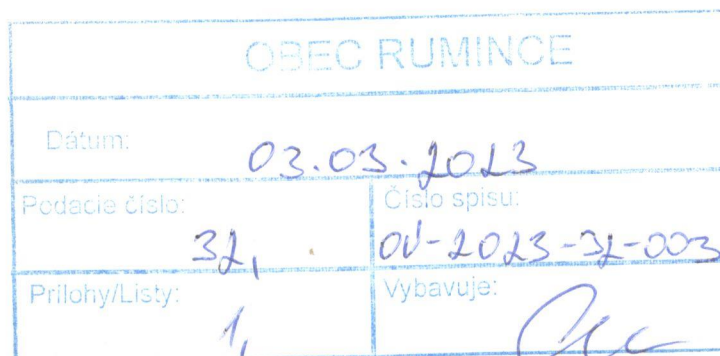 OBEC RUMINCE
Dátum: 03.03.2023
Podacie číslo: 32,
Číslo spisu: OÚ-2023-32-003
Prílohy/Listy: 1,
Vybavuje: